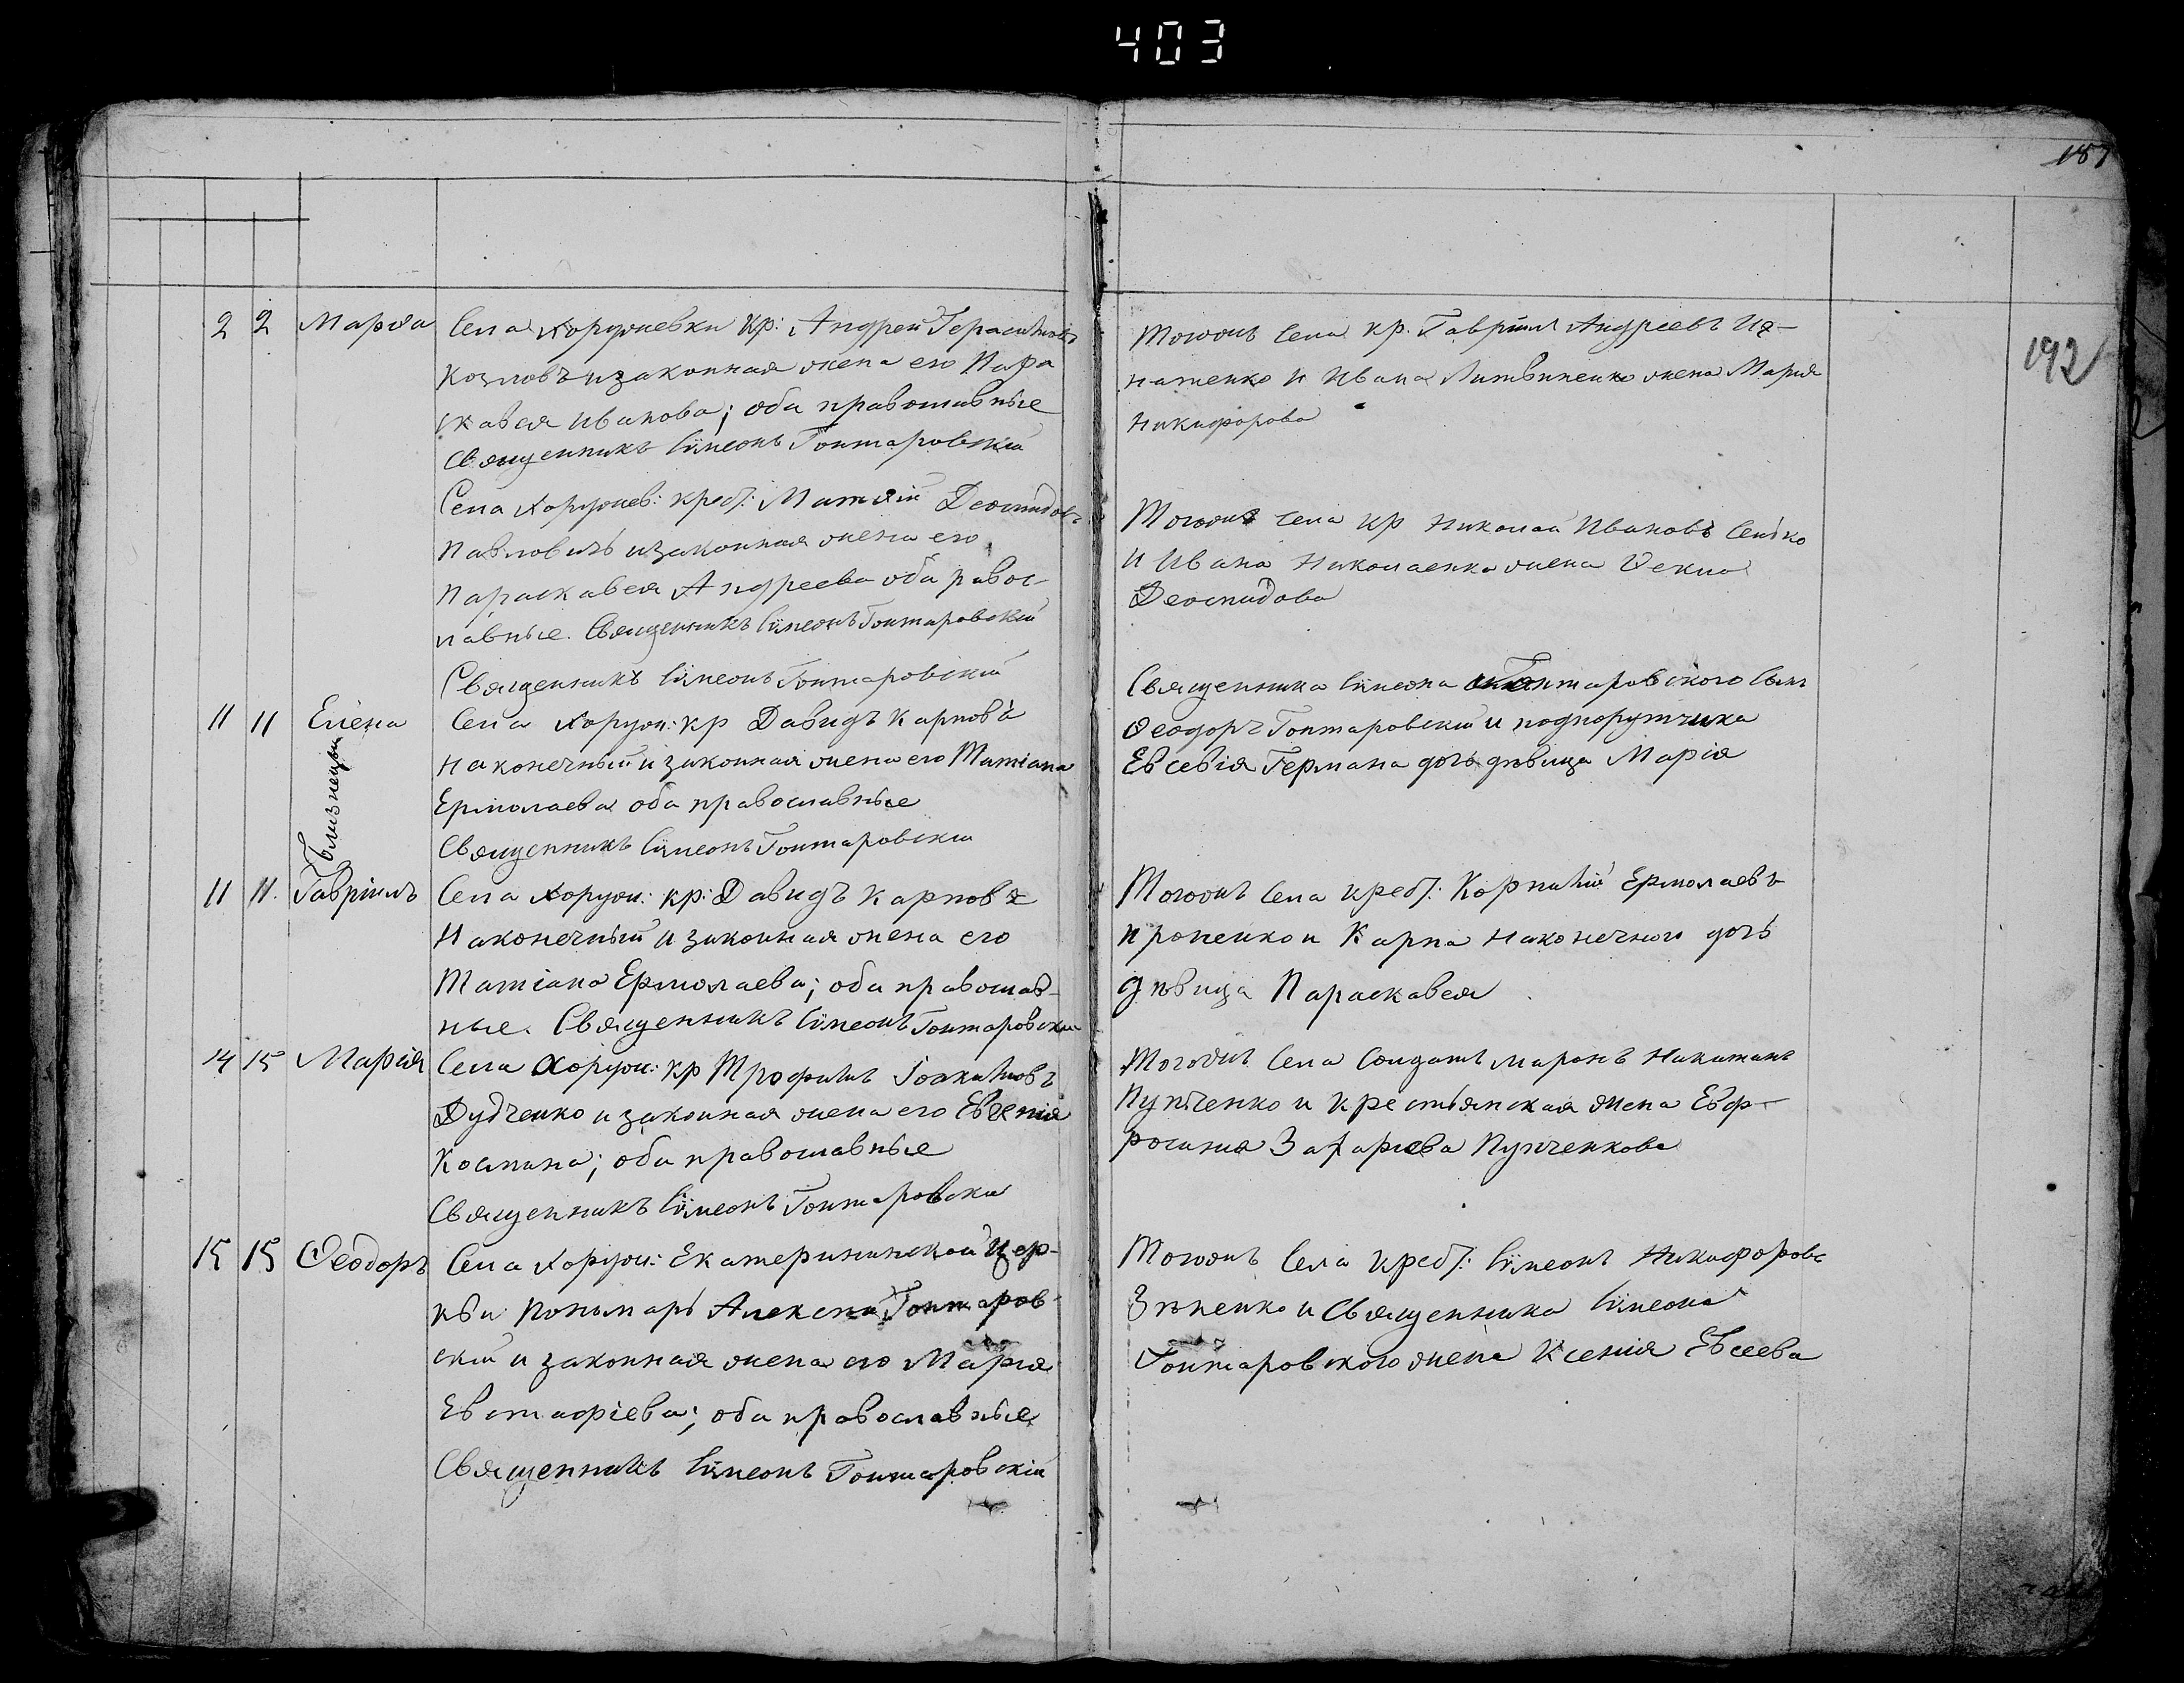 403
187
192
2 2 Марѳа Села Хоружевки кр: Андрей Герасимовъ
Козловъ и законная жена его Пара
скавея Иванова; оба православные
Священникъ Сѵмеонъ Гонтаровскій
Тогожъ села кр. Гавріилъ Андреевъ Иг-
натенко и Ивана Литвиненка жена Марія
Никифорова
Села Хоружев: крест: Матѳій Деомидовъ
Павловичъ и законная жена его
Параскавея Андреева оба равос-
лавные. Священникъ Сѵмеонъ Гонтаровскій
Тогожъ села кр Николай Ивановъ Сенько
и Ивана Николаенка жена Ѳекла
Деомидова
Священникъ Сѵмеонъ Гонтаровскій
11 11 Елена Села Хоруж: кр Давидъ Карповъ
Наконечный и законная жена его Татіана
Ермолаева оба православные
Священникъ Сѵмеонъ Гонтаровскій
Близнецы
Священника Сѵмеона Гонтаровского сынъ
Ѳеодоръ Гонтаровскій и подпорутчика
Евсевія Германа дочь дѣвица Марія
11 11. Гавріилъ Села Хоруж: кр: Давидъ Карповъ
Наконечный и законная жена его
Татіана Ермолаева; оба православ-
ные. Священникъ Сѵмеонъ Гонтаровскій
Тогожъ села крест: Корнилій Ермолаевъ
и Карпа Наконечного дочь
дѣвица Параскавея
14 15 Марія Села Хоруж: кр Трофимъ Іоакимовъ
Дудченко и законная жена его Евгенія
Космина; оба православные
Священникъ Сѵмеонъ Гонтаровскій
Тогожъ села солдатъ Миронъ Никитинъ
Пупченко и крестьянская жена Евф-
росинія Захаріева Пупченкова
15 15 Ѳеодоръ Села Хоруж: Екатерининской цер-
кви пономарь Алексей Гонтаров-
скій и законная жена его Марія
Евстафіева; оба православные
Священникъ Сѵмеонъ Гонтаровскій
Тогожъ села крест: Сѵмеонъ Никифоровъ
Зѣненко и священника Сѵмеона
Гонтаровского жена Ксенія Евсеева